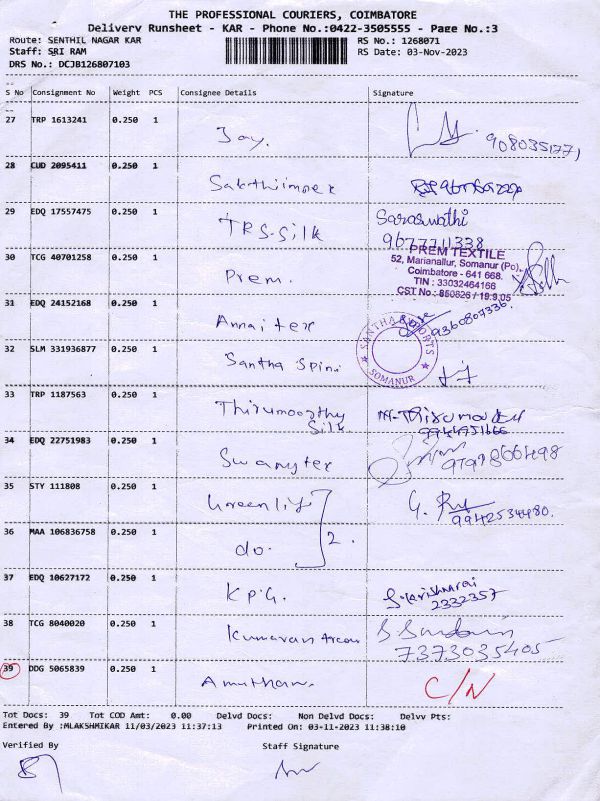 THE PROFESSIONAL COURIERS, COIMBATORE
Delivery Runsheet - KAR - Phone No.:0422-3505555 - Page No.:3
Route: SENTHIL NAGAR KAR RS No.: 1268071
Staff: SRI RAM RS Date: 03-Nov-2023
DRS No.: DCJB126807103
S No Consignment No Weight PCS Consignee Details Signature
27 TRP 1613241 0.250 1 Jay.
28 CUD 2095411 0.250 1
29 EDQ 17557475 0.250 1 TRS-Silk Saraswathi
9677711338
30 TCG 40701258 0.250 1 Prem.
PREM TEXTILE
52, Marianallur, Somanur (Po),
Coimbatore - 641 668.
TIN : 33032464166
CST No.: 850826 / 19.9.05
31 EDQ 24152168 0.250 1 Annaitex 9360807336.
32 SLM 331936877 0.250 1 Santha Spini
SANTHA EXPORTS
SOMANUR
33 TRP 1187563 0.250 1 Thirumoorthy
Silk 9944951666
34 EDQ 22751983 0.250 1 Swanytex 9789866498
35 STY 111808 0.250 1 Greenlife
9942534480.
36 MAA 106836758 0.250 1 do. 2.
37 EDQ 10627172 0.250 1 K.P.G.
2332357
38 TCG 8040020 0.250 1 Kumaran
7373035405
39 DDG 5065839 0.250 1 Amutham. C/N
Tot Docs: 39 Tot COD Amt: 0.00 Delvd Docs: Non Delvd Docs: Delvv Pts:
Entered By :MLAKSHMIKAR 11/03/2023 11:37:13 Printed On: 03-11-2023 11:38:10
Verified By Staff Signature